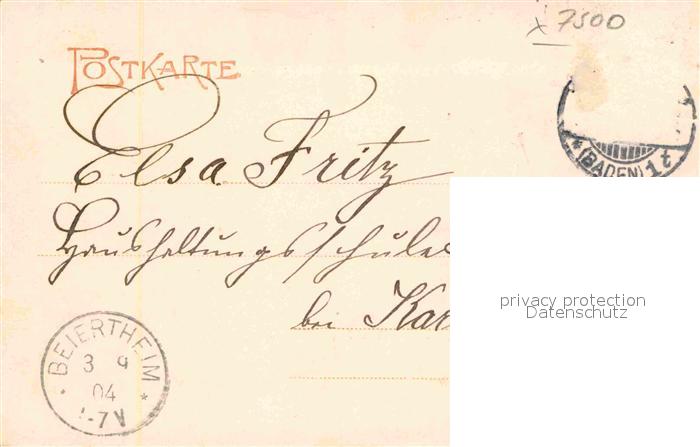 x 7500
POSTKARTE
* (BADEN) 1 t
Elsa Fritz
Haushaltungsschule
bei Kar
privacy protection
Datenschutz
BEIERTHEIM
3 9
04
-7V